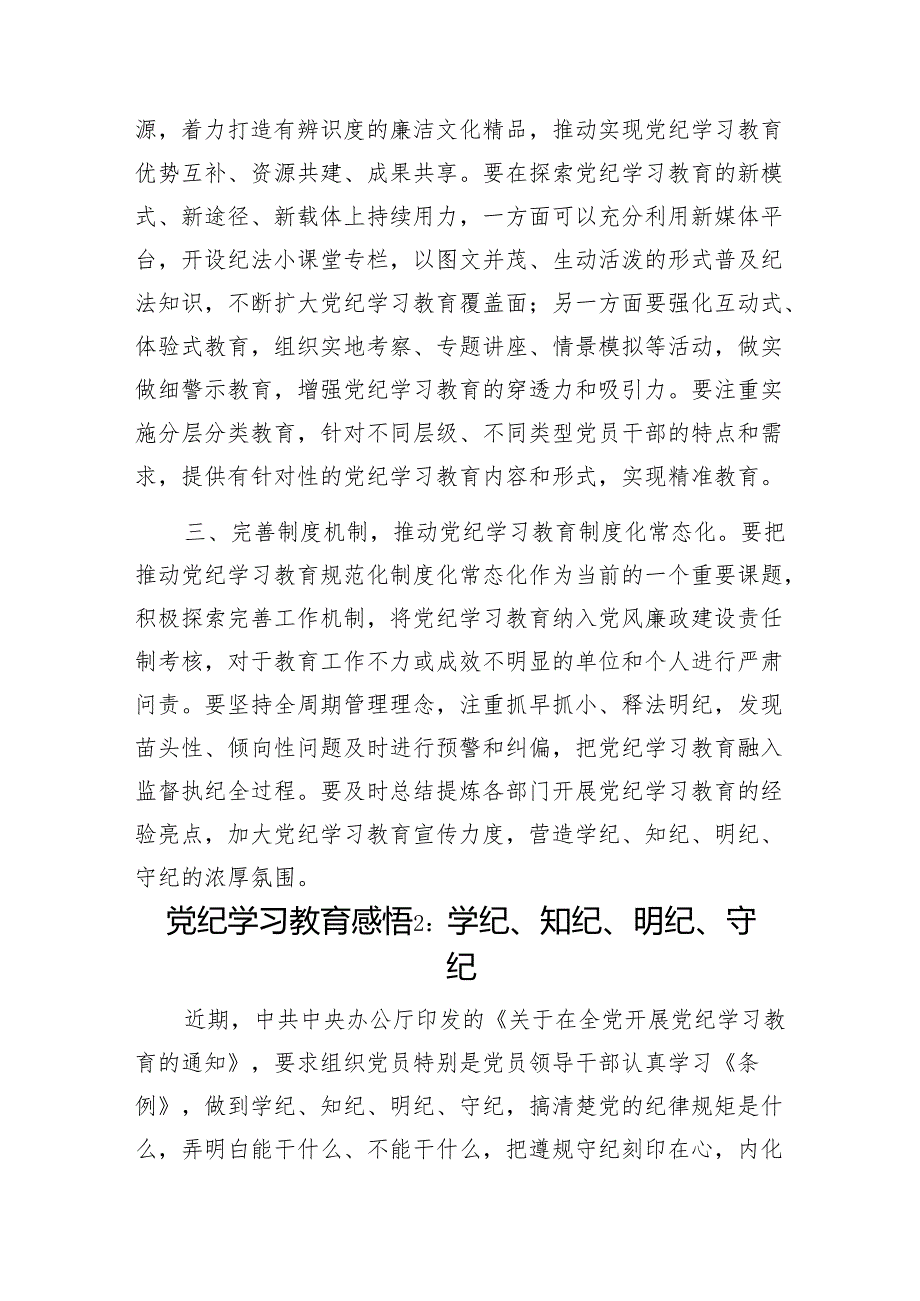 源，着力打造有辨识度的廉洁文化精品，推动实现党纪学习教育
优势互补、资源共建、成果共享。要在探索党纪学习教育的新模
式、新途径、新载体上持续用力，一方面可以充分利用新媒体平
台，开设纪法小课堂专栏，以图文并茂、生动活泼的形式普及纪
法知识，不断扩大党纪学习教育覆盖面；另一方面要强化互动式、
体验式教育，组织实地考察、专题讲座、情景模拟等活动，做实
做细警示教育，增强党纪学习教育的穿透力和吸引力。要注重实
施分层分类教育，针对不同层级、不同类型党员干部的特点和需
求，提供有针对性的党纪学习教育内容和形式，实现精准教育。
三、完善制度机制，推动党纪学习教育制度化常态化。要把
推动党纪学习教育规范化制度化常态化作为当前的一个重要课题，
积极探索完善工作机制，将党纪学习教育纳入党风廉政建设责任
制考核，对于教育工作不力或成效不明显的单位和个人进行严肃
问责。要坚持全周期管理理念，注重抓早抓小、释法明纪，发现
苗头性、倾向性问题及时进行预警和纠偏，把党纪学习教育融入
监督执纪全过程。要及时总结提炼各部门开展党纪学习教育的经
验亮点，加大党纪学习教育宣传力度，营造学纪、知纪、明纪、
守纪的浓厚氛围。
党纪学习教育感悟2：学纪、知纪、明纪、守
纪
近期，中共中央办公厅印发的《关于在全党开展党纪学习教
育的通知》，要求组织党员特别是党员领导干部认真学习《条
例》，做到学纪、知纪、明纪、守纪，搞清楚党的纪律规矩是什
么，弄明白能干什么、不能干什么，把遵规守纪刻印在心，内化